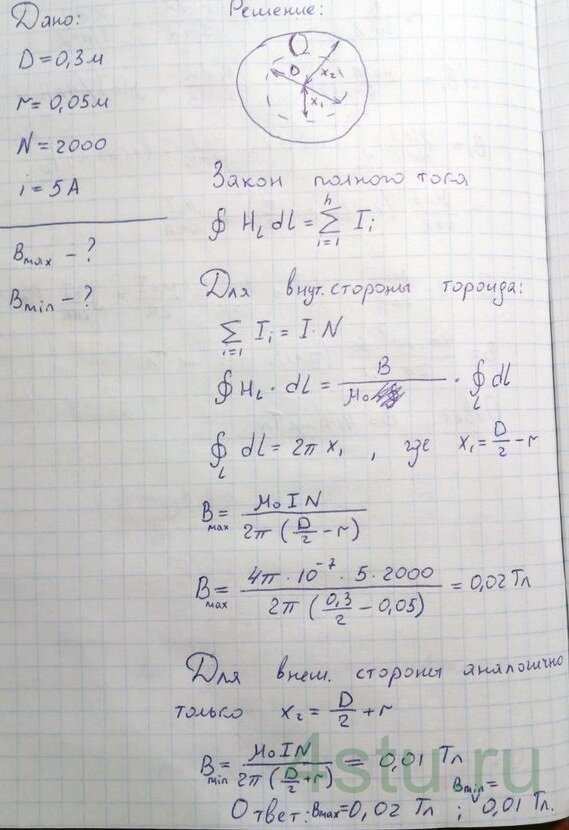 Дано:
D = 0,3 м
r = 0,05 м
N = 2000
i = 5 А
Bmax - ?
Bmin - ?
Решение:
D
x₂
x₁
Закон полного тока
∮ H_L dl = ∑_{i=1}^{n} I_i
Для внут. стороны тороида:
∑_{i=1} I_i = I · N
∮ H_L · dl = B / μ₀ · ∮_L dl
∮_L dl = 2π x₁ , где x₁ = D/2 - r
B_max = μ₀ I N / 2π (D/2 - r)
B_max = 4π · 10⁻⁷ · 5 · 2000 / 2π (0,3/2 - 0,05) = 0,02 Тл
Для внеш. стороны аналогично
только x₂ = D/2 + r
B_min = μ₀ I N / 2π (D/2 + r) = 0,01 Тл
Ответ: B_max = 0,02 Тл ; B_min = 0,01 Тл.
4stu.ru